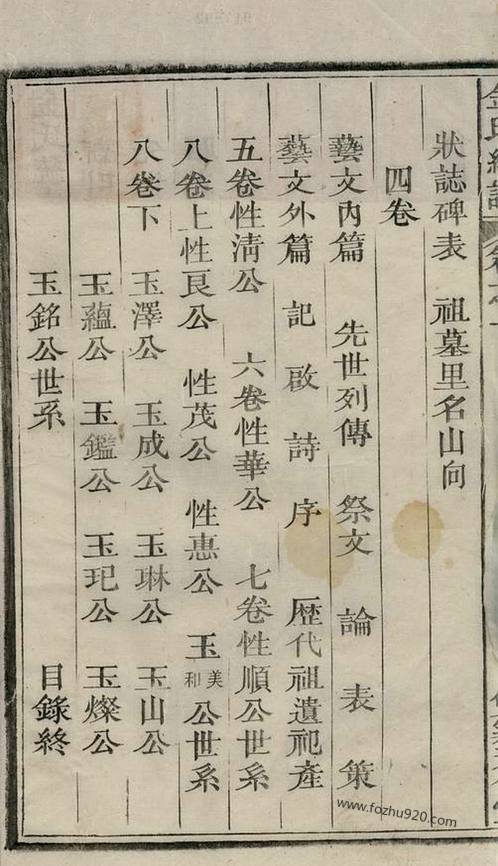 狀誌碑表 祖墓里名山向
四卷
藝文內篇 先世列傳 祭文 論 表 策
藝文外篇 記 啟 詩 序 歷代祖遺祀產
五卷性淸公 六卷性華公 七卷性順公世系
八卷上性艮公 性茂公 性惠公 玉美和公世系
八卷下 玉澤公 玉成公 玉琳公 玉山公
玉蘊公 玉鑑公 玉玘公 玉燦公
玉銘公世系 目錄終
www.fozhu920.com